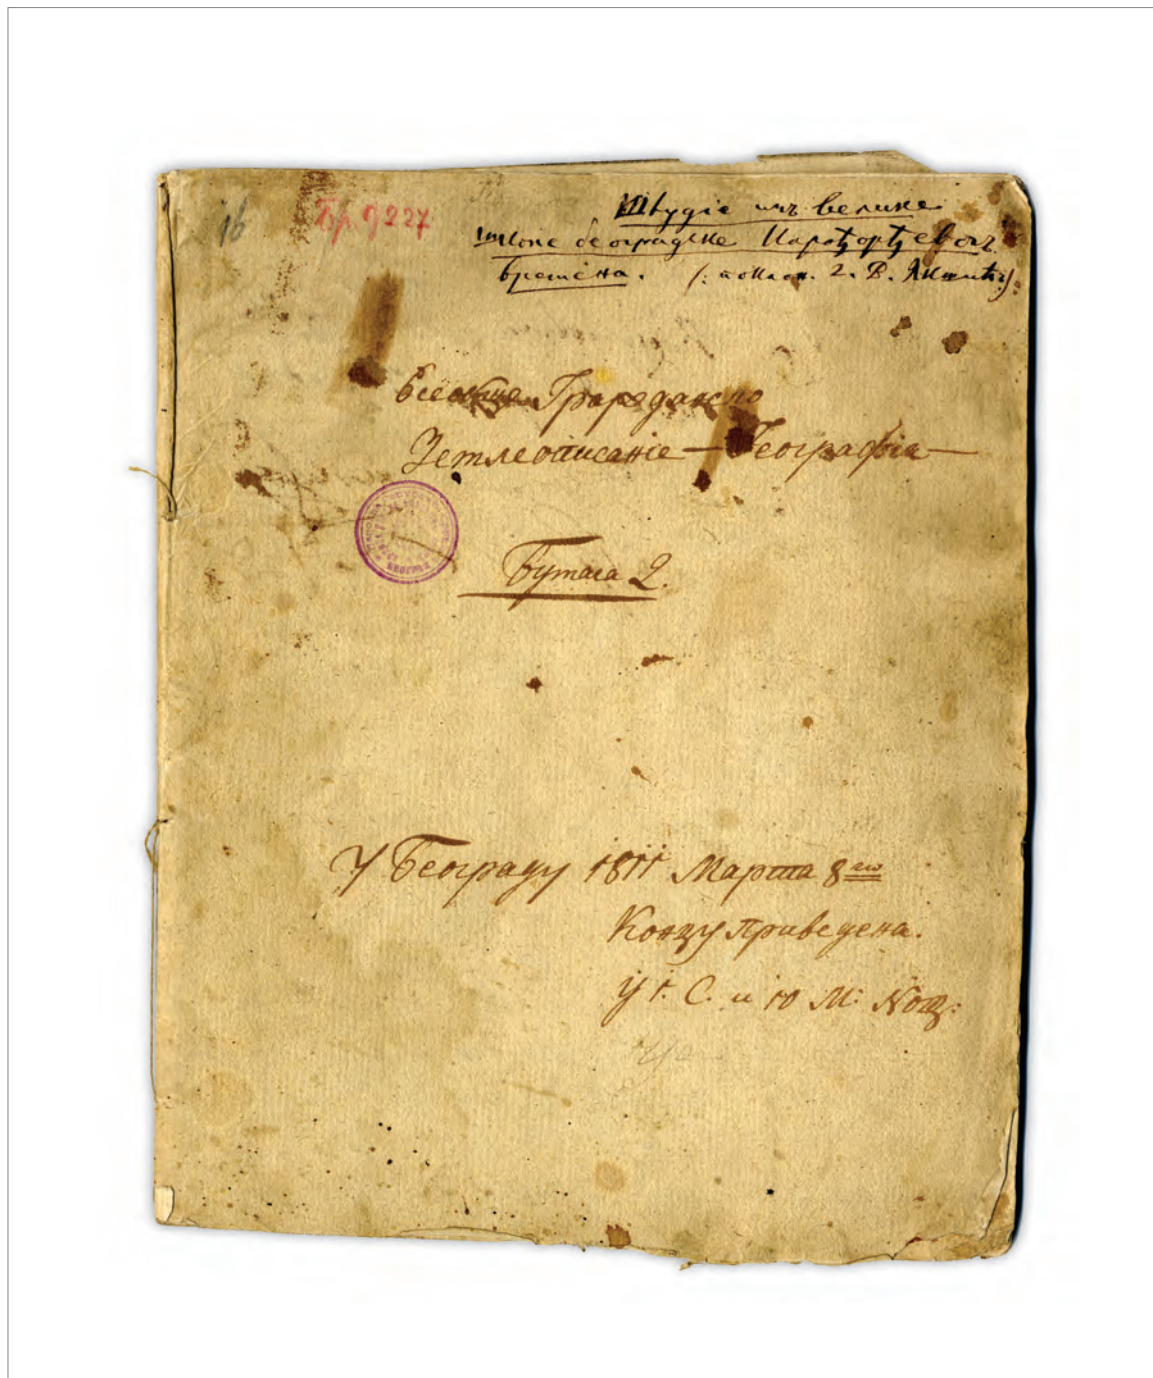 16
Бр. 9227
Штудіе изъ велике
школе београдске Карађорђевогъ
времена. (: поклон. г. В. Якшића :)
Всеобще Гражданско
Землеописаніе — Географіа —
Бутага 2.
У Београду 1811 Марта 8го
Концу приведена.
У 1. С. и 10 М: Нощ: